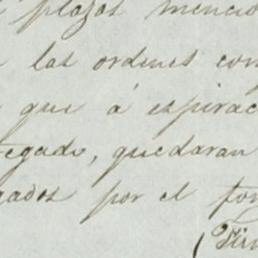 plazos mencio
las ordenes con
que á espirac
tegado, quedaran
gados por el for
(Fir